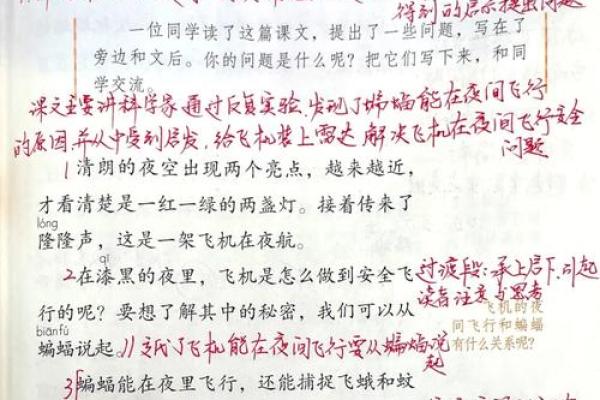 得到的启示提出问题
一位同学读了这篇课文，提出了一些问题，写在了
旁边和文后。你的问题是什么呢？把它们写下来，和同
学交流。
课文主要讲科学家通过反复实验，发现了蝙蝠能在夜间飞行
的原因，并从中受到启发，给飞机装上雷达，解决飞机在夜间飞行安全
问题
1清朗的夜空出现两个亮点，越来越近，
才看清楚是一红一绿的两盏灯。接着传来了
lóng
隆隆声，这是一架飞机在夜航。
qī
2在漆黑的夜里，飞机是怎么做到安全飞
行的呢？要想了解其中的秘密，我们可以从
biānfú
蝙蝠说起。//
为了飞机能在夜间飞行要从蝙蝠说
起
过渡段：承上启下，引起
读者注意与思考
飞机的夜
间飞行和蝙蝠
有什么关系呢？
3蝙蝠能在夜里飞行，还能捕捉飞蛾和蚊